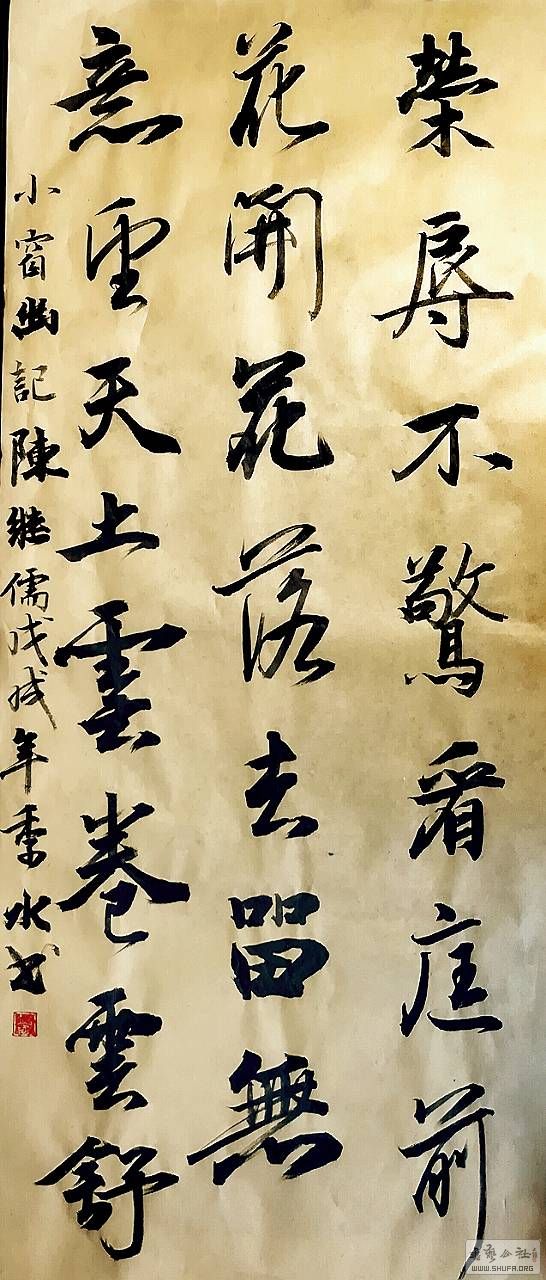 榮辱不驚看庭前
花開花落去留無
意望天上雲卷雲舒
小窗幽記陳継儒戊戌年季水书
書藝公社
WWW.SHUFA.ORG